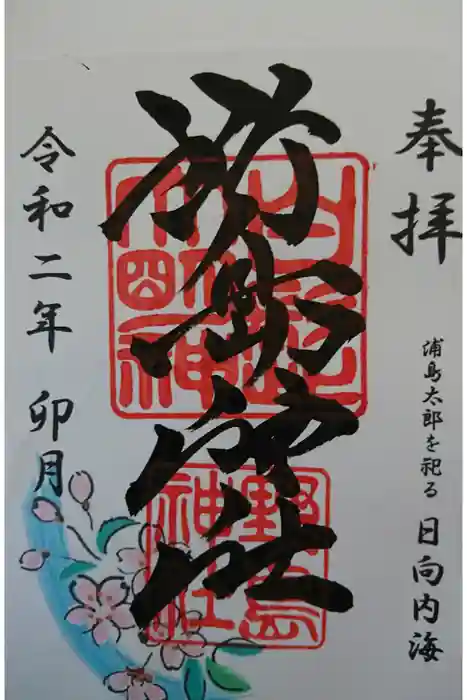 奉拝
浦島太郎を祀る 日向内海
野島神社
野島
神社
令和二年 卯月